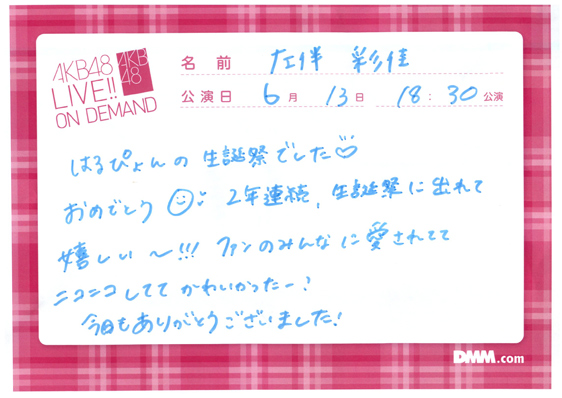 AKB48
LIVE!!
ON DEMAND
AKB
48
名前 左伴 彩佳
公演日 6月 13日 18:30公演
はるぴょんの 生誕祭でした♡
おめでとう 2年連続, 生誕祭に出れて
嬉しい〜!!! ファンのみんなに愛されてて
ニコニコしてて かわいかったー!
今日もありがとうございました!
DMM.com